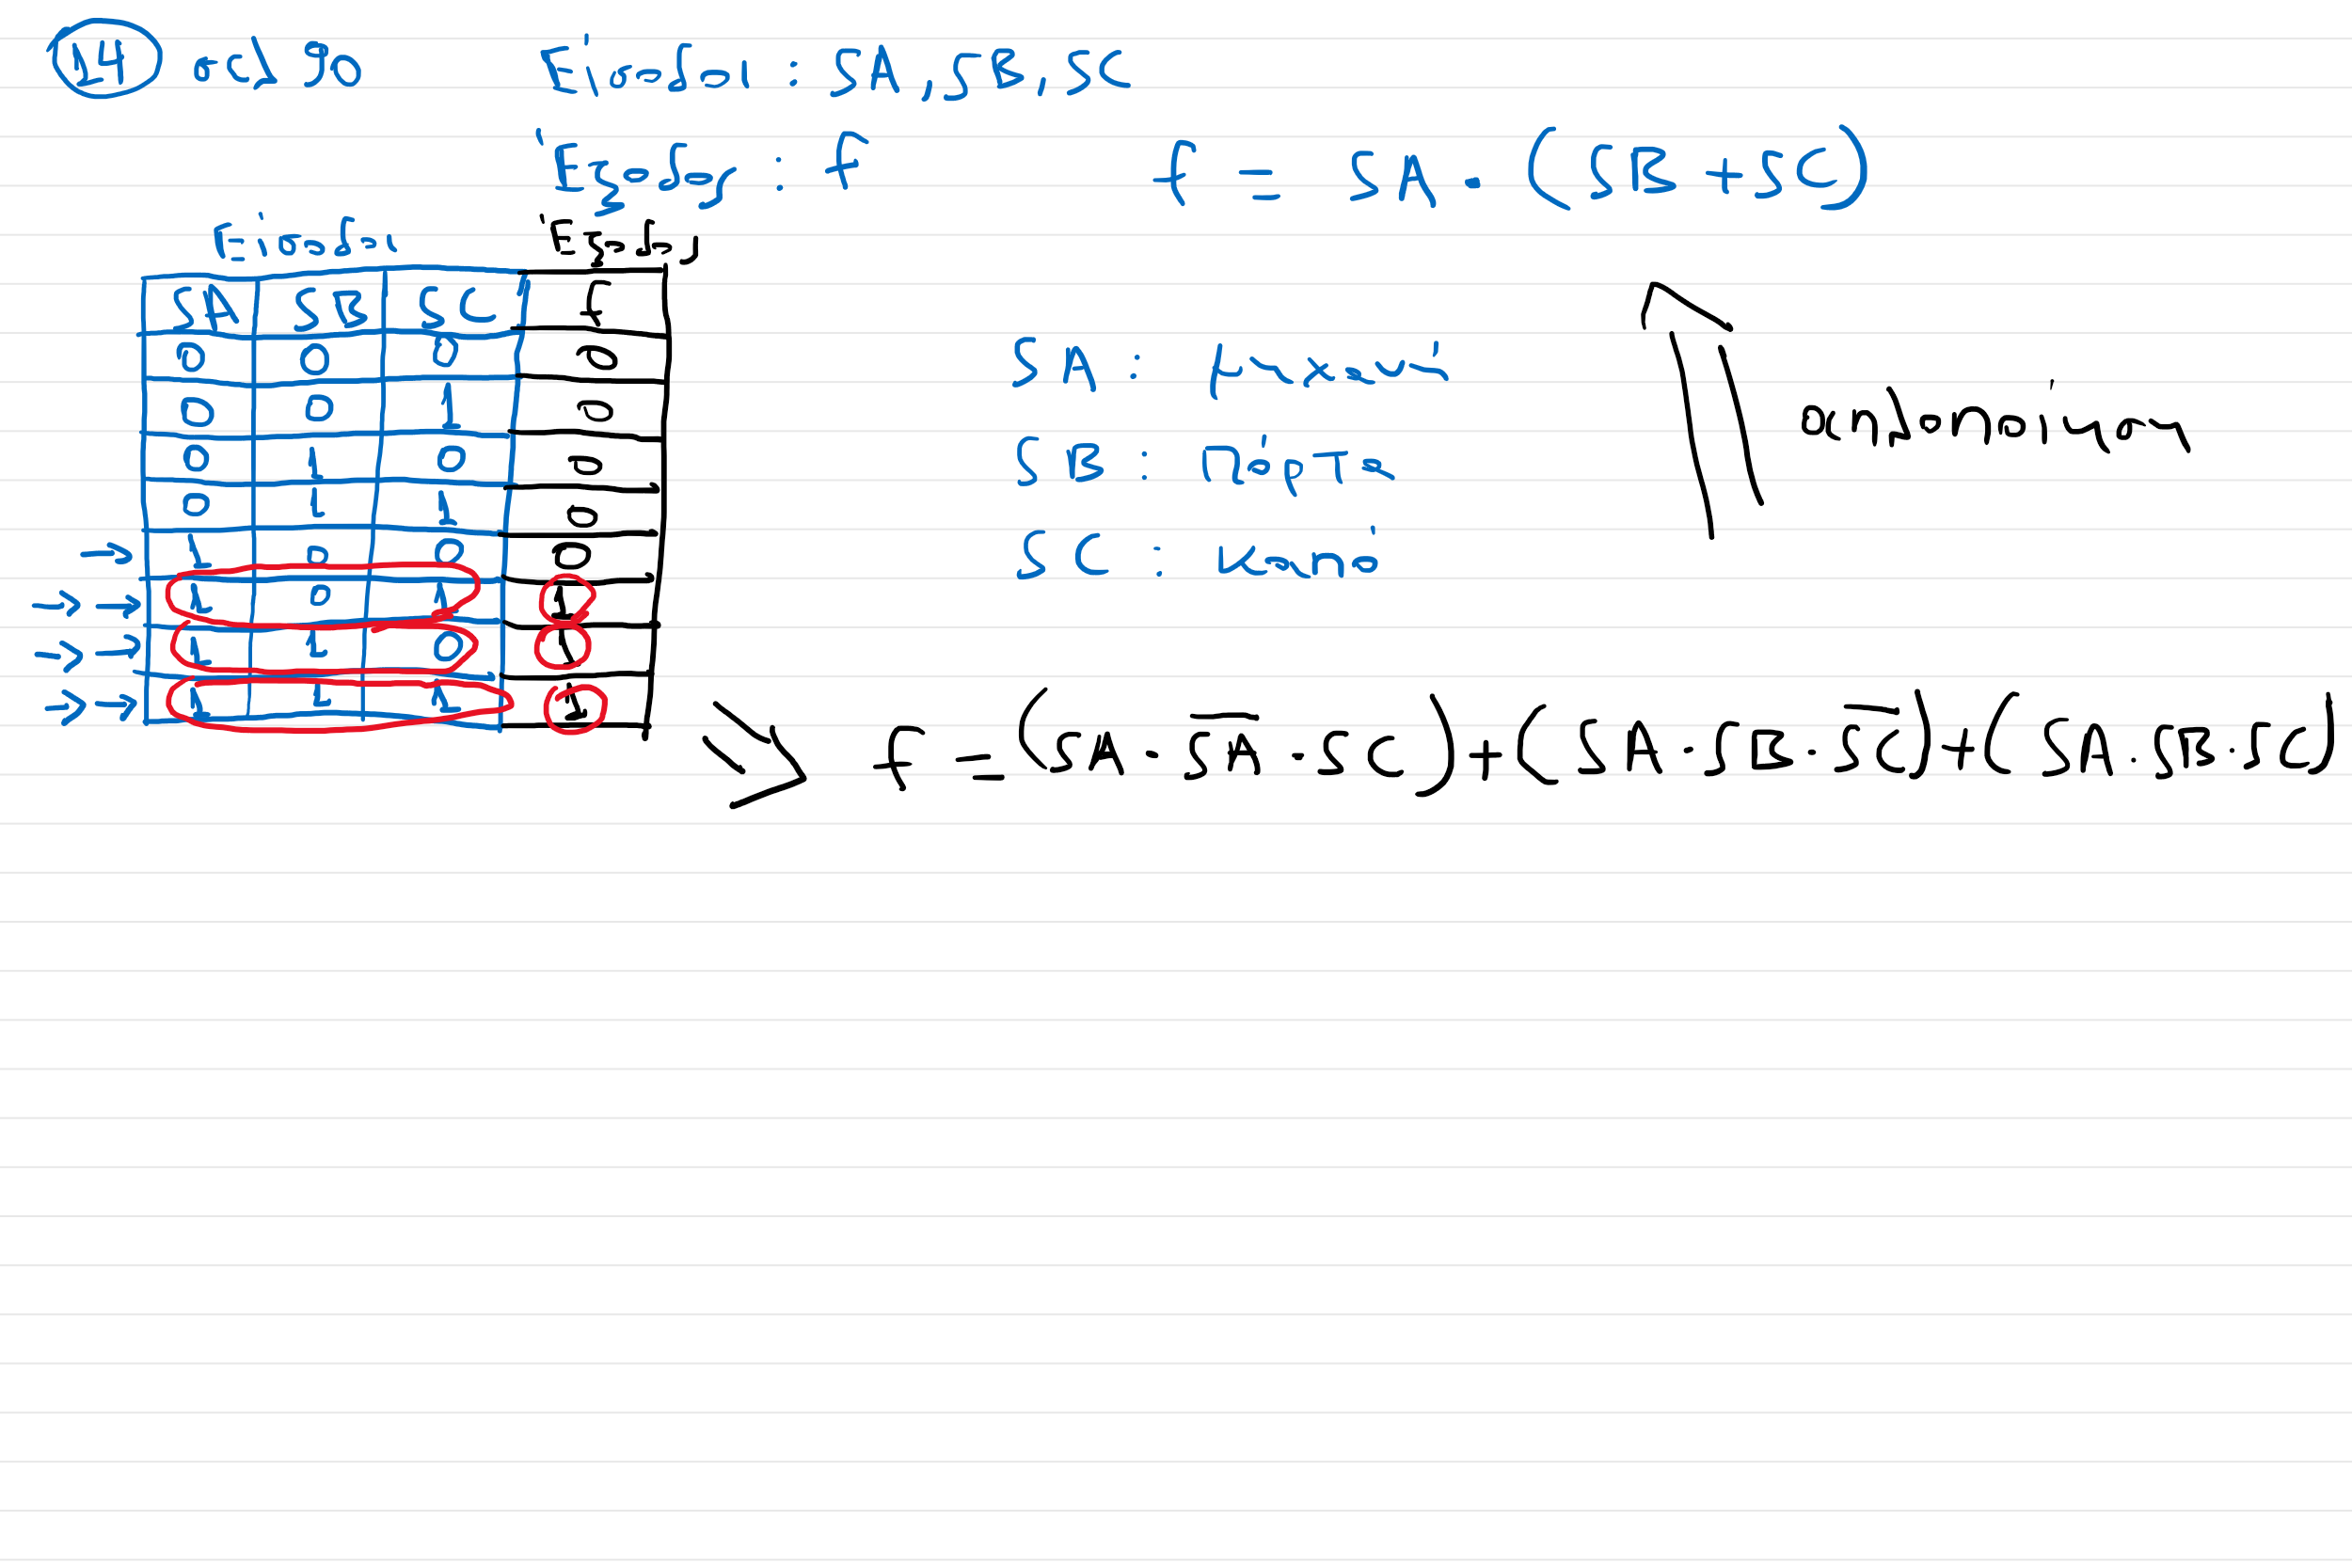 14 σελ 80 Είσοδοι : SA, SB, SC
Έξοδος : F F = SA · (SB + SC)
Είσοδοι Έξοδος
SA SB SC F
0 0 0 0
0 0 1 0
0 1 0 0
0 1 1 0
→ 1 0 0 0
→ → 1 0 1 1
→ → 1 1 0 1
→ → 1 1 1 1
SA : μηχανή
SB : Πόρτα
SC : καπό
απλοποίηση
F = (SA · S̅A̅ · SC) + (SA · SB · S̅C̅) + (SA · SB · SC)